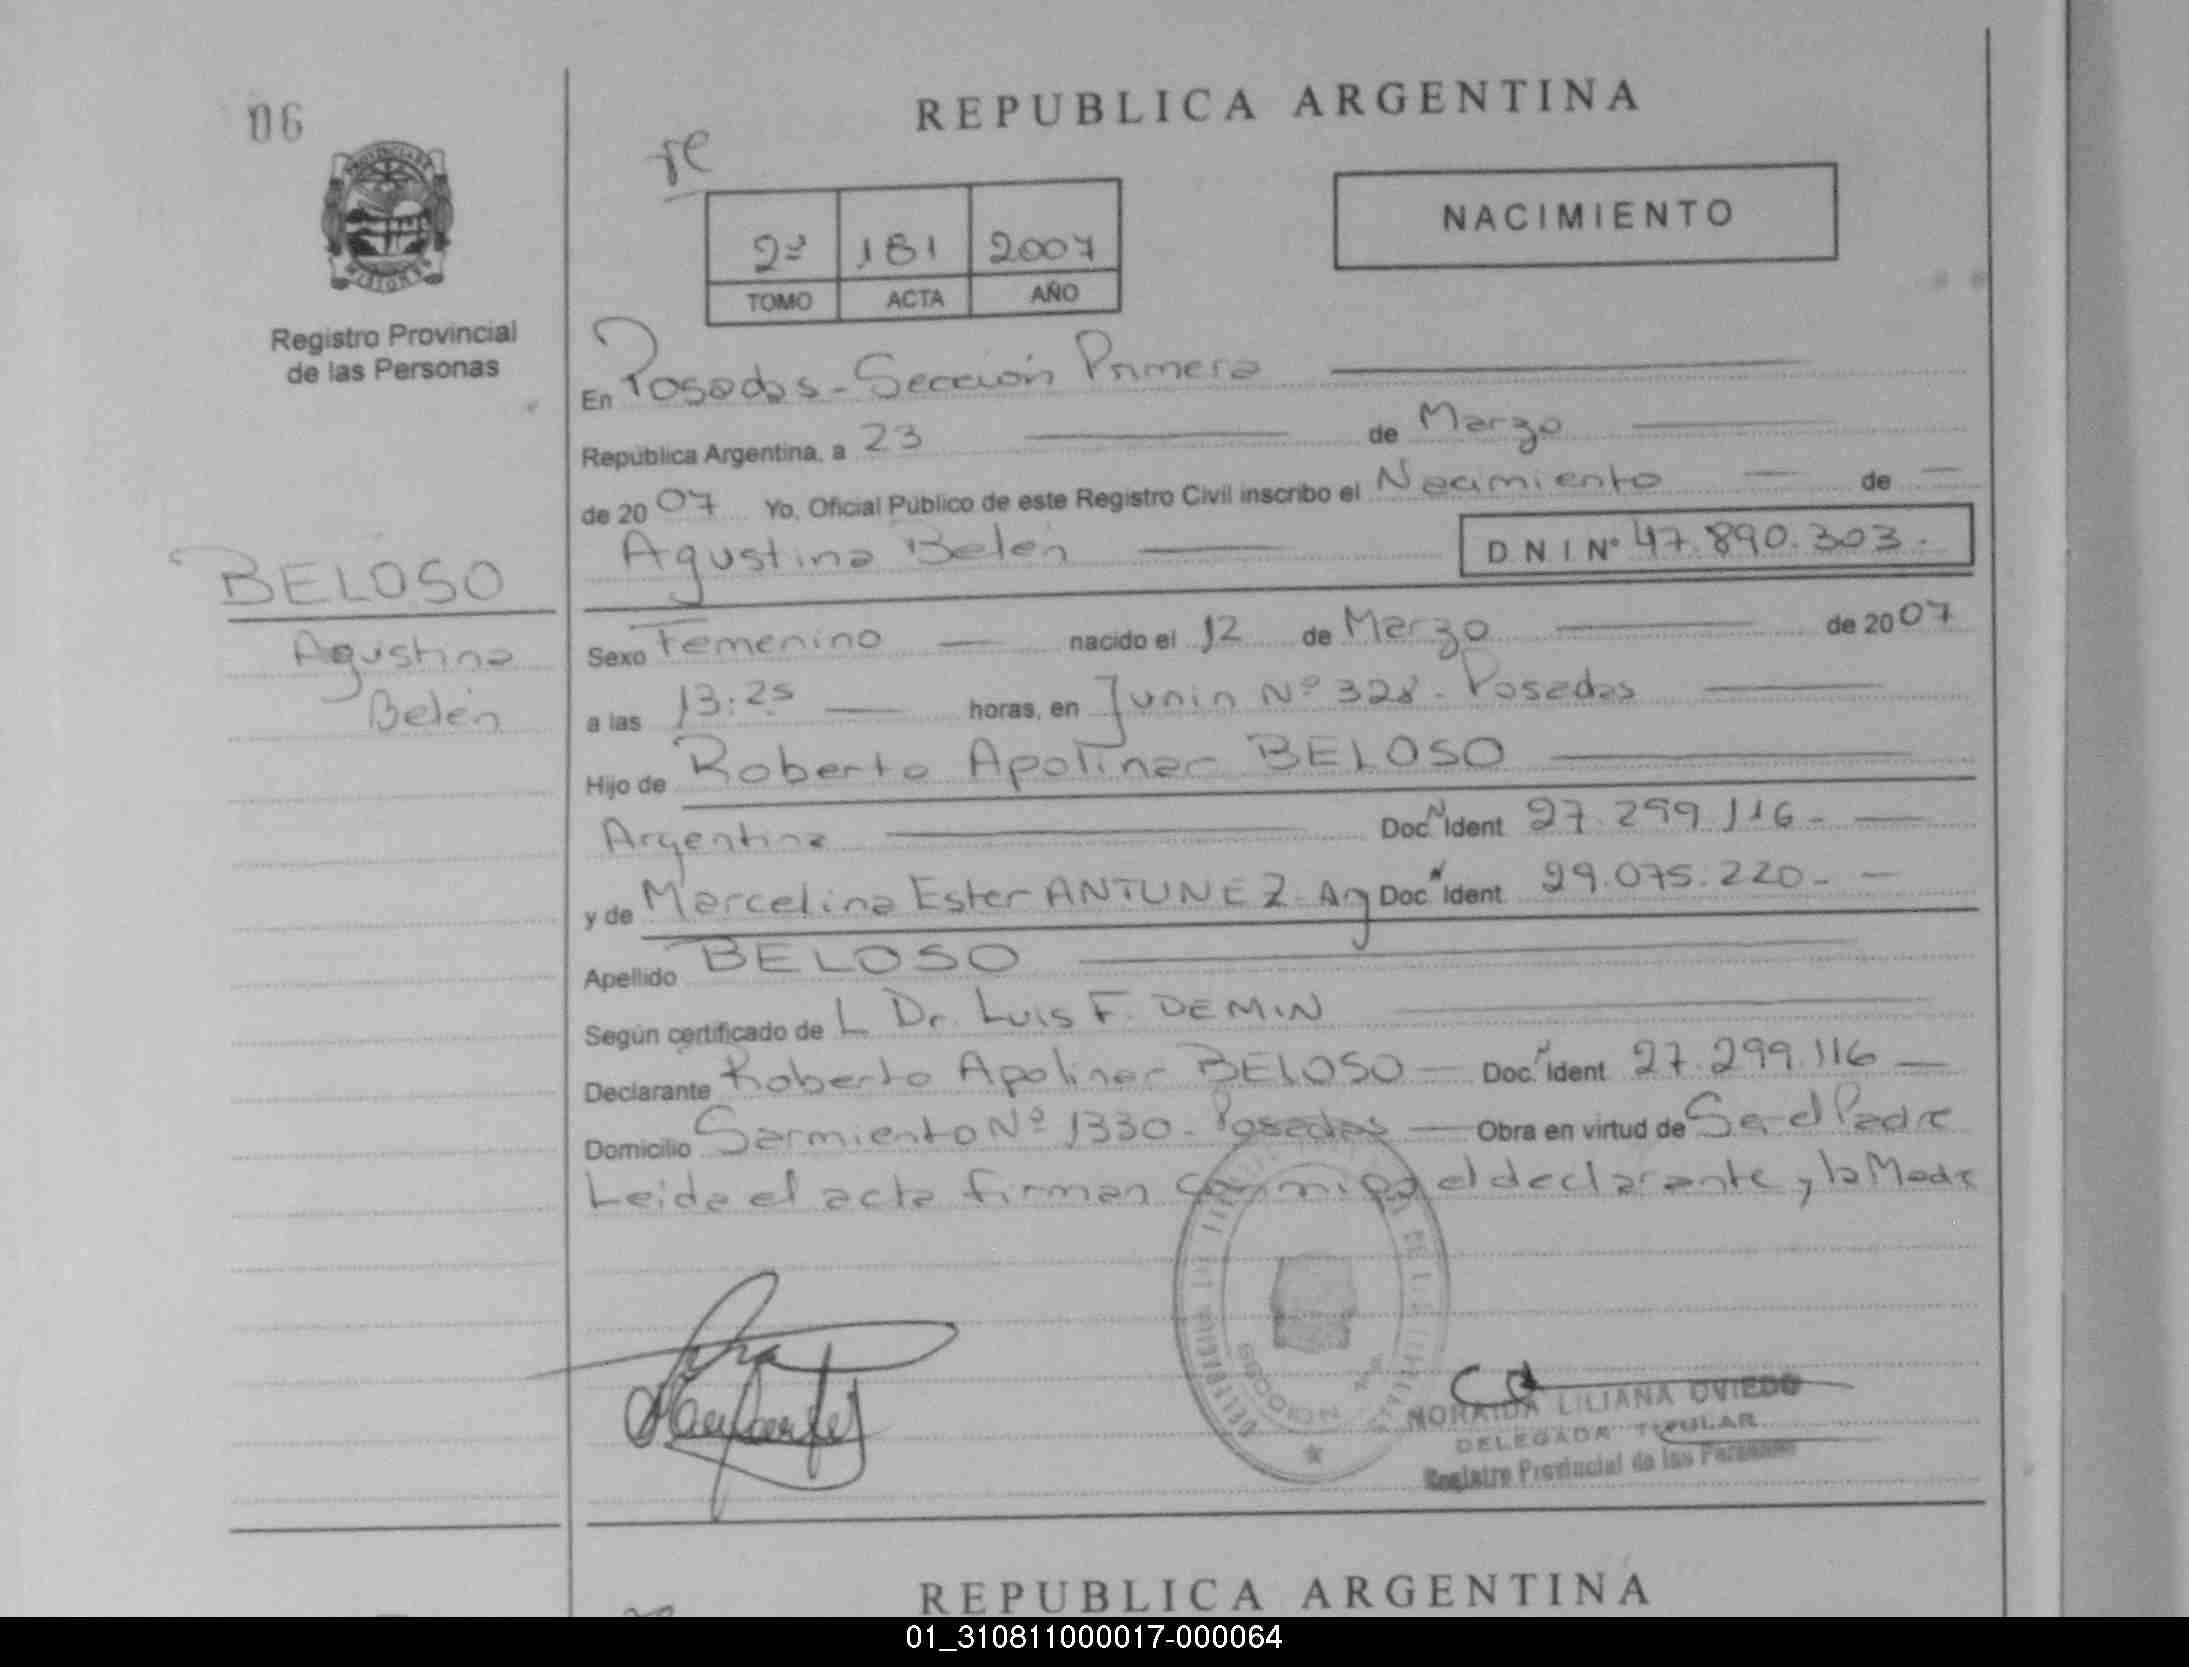 06
REPUBLICA ARGENTINA
PROVINCIA DE
MISIONES
Registro Provincial
de las Personas
2º 181 2007
TOMO ACTA AÑO
NACIMIENTO
En Posadas - Sección Primera
República Argentina, a 23 de Marzo
de 2007 Yo, Oficial Público de este Registro Civil inscribo el Nacimiento de
Agustina Belén D N I Nº 47.890.303.-
BELOSO
Agustina
Belén
Sexo Femenino nacido el 12 de Marzo de 2007
a las 13:25 horas, en Junin Nº 328 - Posadas
Hijo de Roberto Apolinar BELOSO
Argentina Doc. N Ident 27.299.116 -
y de Marcelina Ester ANTUNEZ - Arg Doc. N Ident 29.075.220 -
Apellido BELOSO
Según certificado de L Dr. Luis F. DEMIN
Declarante Roberto Apolinar BELOSO Doc. N Ident 27.299.116
Domicilio Sarmiento Nº 1330 - Posadas Obra en virtud de Ser el Padre
Leida el acta firman conmigo el declarante y la Madre
NORAIDA LILIANA OVIEDO
DELEGADA TITULAR
Registro Provincial de las Personas
REPUBLICA ARGENTINA
01_310811000017-000064